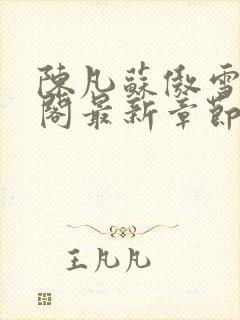 陳凡蘇傲雪
閣最新章節
王凡凡